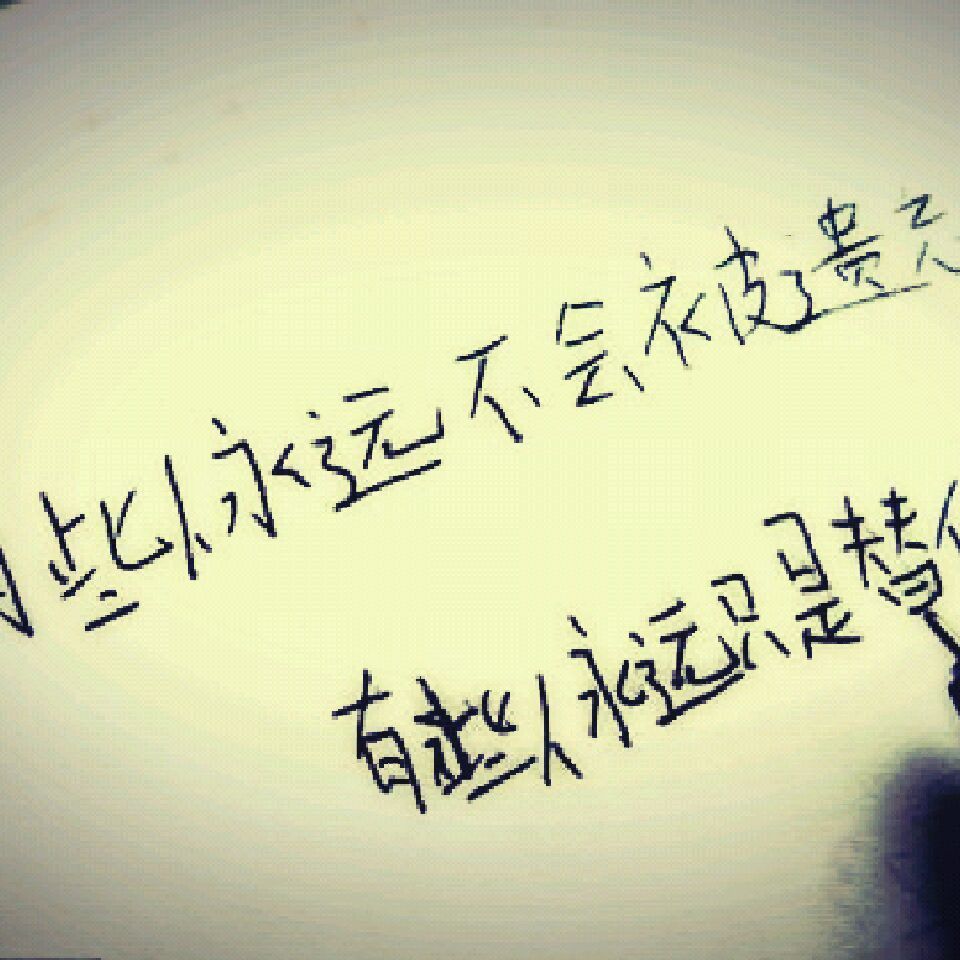 些人永远不会被遗
有些人永远只是替